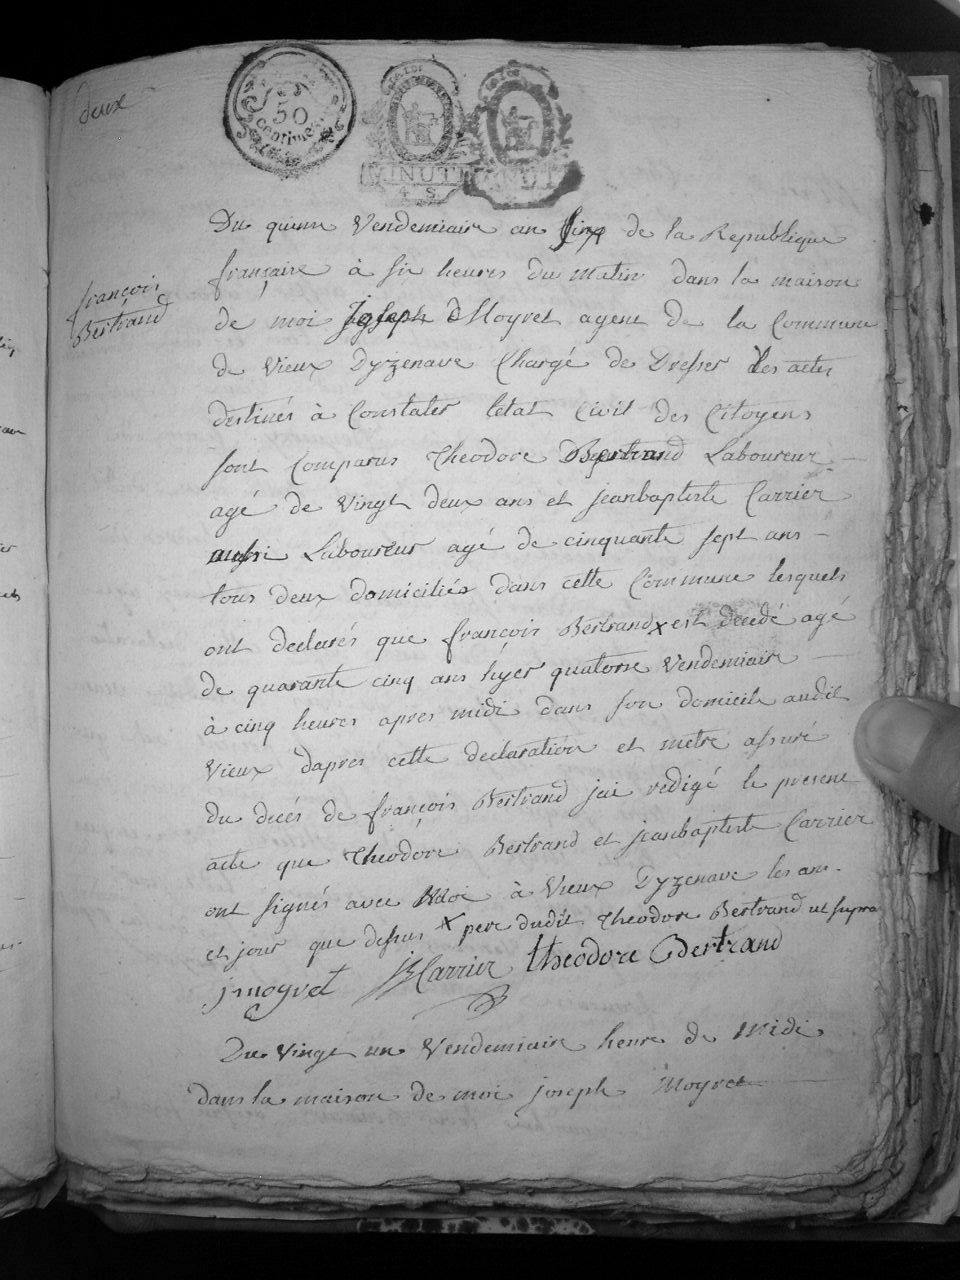 deux
50
centimes
MINUTE
4 S
Du quinze Vendemiaire an Cinq de la Republique
françaize à six heures du matin dans la maison
françois
Bertrand
de moi Joseph Moyret agent de la Commune
de Vieux Dyzenave Chargé de Dresser les actes
destinés à Constater letat Civil des Citoyens
sont Comparus theodore Bertrand Laboureur
agé de Vingt deux ans et jeanbaptiste Carrier
aussi Laboureur agé de cinquante sept ans
tous deux domiciliés dans cette Commune lesquels
ont declarés que françois Bertrand x est decedé agé
de quarante cinq ans hyer quatorse Vendemiaire
à cinq heures apres midi dans son domicile audit
Vieux dapres cette declaration et metre assuré
du decés de françois Bertrand jai redigé le present
acte que theodore Bertrand et jeanbaptiste Carrier
ont signés avec Moi à Vieux Dyzenave les an
et jour que dessus x pere dudit theodore Bertrand ut supra
j moyret JB Carrier theodore Bertrand
Du Vingt un Vendemiaire heure de Midi
dans la maison de moi joseph Moyret